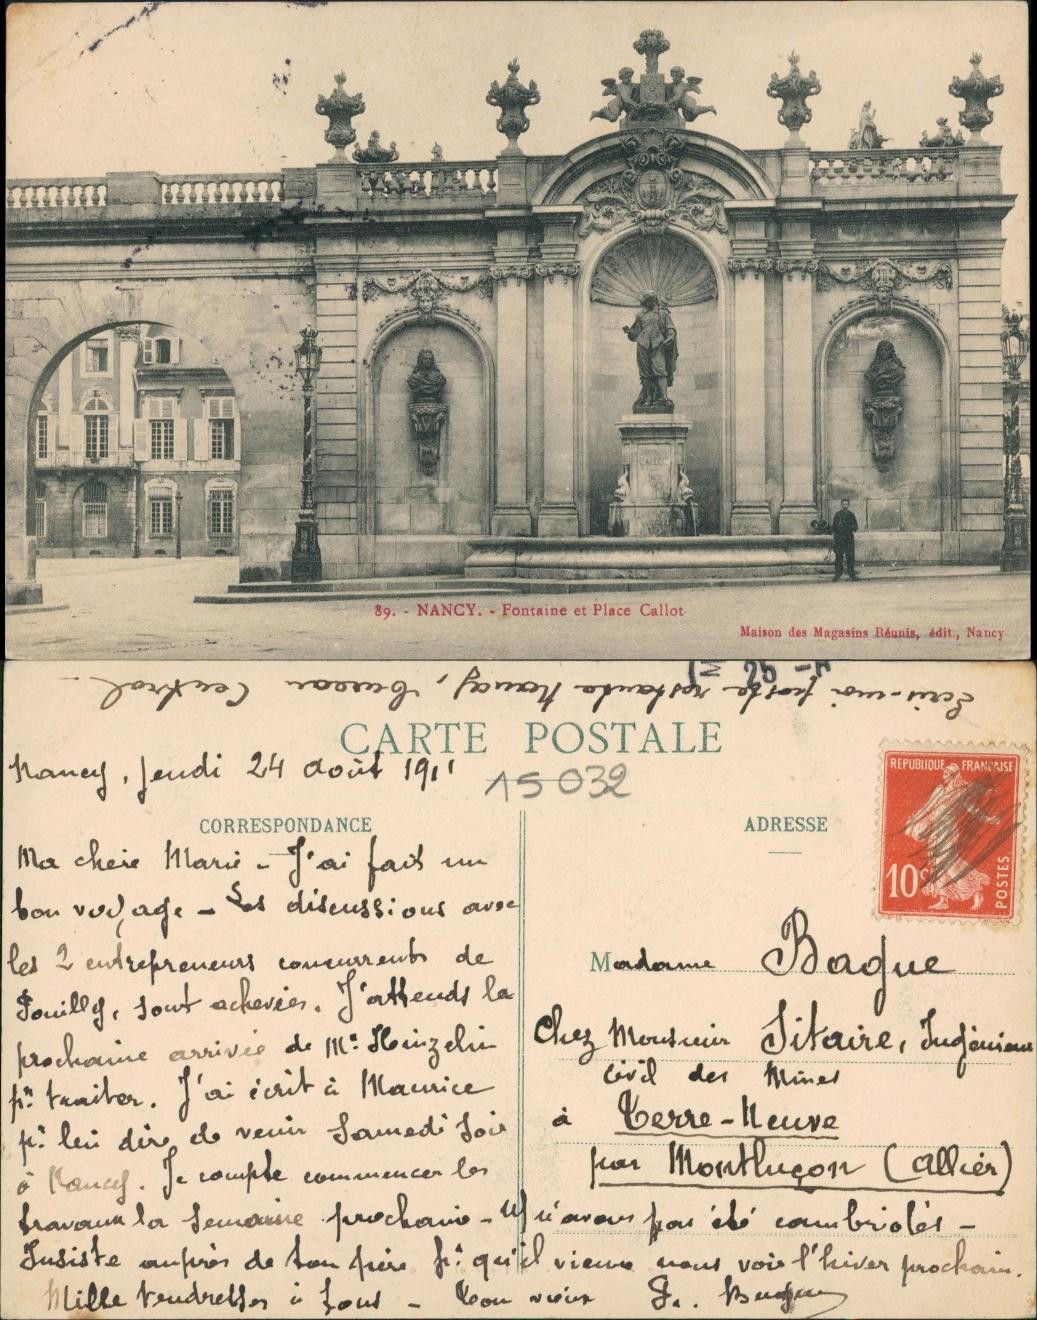 JACQUES
CALLOT
89. - NANCY. - Fontaine et Place Callot
Maison des Magasins Réunis, édit., Nancy
Ecris-moi poste restante Nancy, bureau Central -
CARTE POSTALE
Nancy, Jeudi 24 août 1911
15032
CORRESPONDANCE
ADRESSE
REPUBLIQUE FRANÇAISE
10c
POSTES
Ma chère Marie - J'ai fait un
bon voyage - Les discussions avec
les 2 entrepreneurs concurrents de
Pouilly, sont achevées. J'attends la
prochaine arrivée de Mr Hinzelin
pr traiter. J'ai écrit à Maurice
pr lui dire de venir Samedi soir
à Nancy. Je compte commencer les
travaux la semaine prochaine - n'avons pas été cambriolés -
Insiste auprès de ton père pr qu'il vienne nous voir l'hiver prochain.
Mille tendresses à tous - Ton vieux
Madame Bague
Chez Monsieur Sitaire, Ingénieur
civil des Mines
à Terre-Neuve
par Montluçon (Allier)